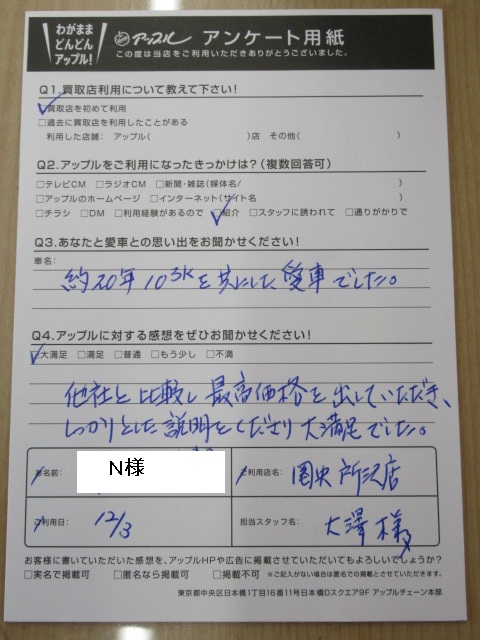 わがまま
どんどん
アップル!
アップル アンケート用紙
この度は当店をご利用いただきありがとうございました。
Q1.買取店利用について教えて下さい!
買取店を初めて利用
□過去に買取店を利用したことがある
利用した店舗: アップル( )店 その他( )
Q2.アップルをご利用になったきっかけは?(複数回答可)
□テレビCM □ラジオCM □新聞・雑誌(媒体名/ )
□アップルのホームページ □インターネット(サイト名 )
□チラシ □DM □利用経験があるので □紹介 □スタッフに誘われて □通りがかりで
Q3.あなたと愛車との思い出をお聞かせください!
車名:
約20年 10 を共にした愛車でした。
Q4.アップルに対する感想をぜひお聞かせください!
□大満足 □満足 □普通 □もう少し □不満
他社と比較し最高価格を出していただき、
しっかりとした説明をくださり大満足でした。
お名前: N様
ご利用店名: 圏央所沢店
ご利用日: 12/3
担当スタッフ名: 大澤様
お客様に書いていただいた感想を、アップルHPや広告に掲載させていただいてもよろしいでしょうか?
□実名で掲載可 □匿名なら掲載可 □掲載不可 ※ご記入がない場合は匿名での掲載とさせていただきます。
東京都中央区日本橋1丁目16番11号日本橋Dスクエア9F アップルチェーン本部